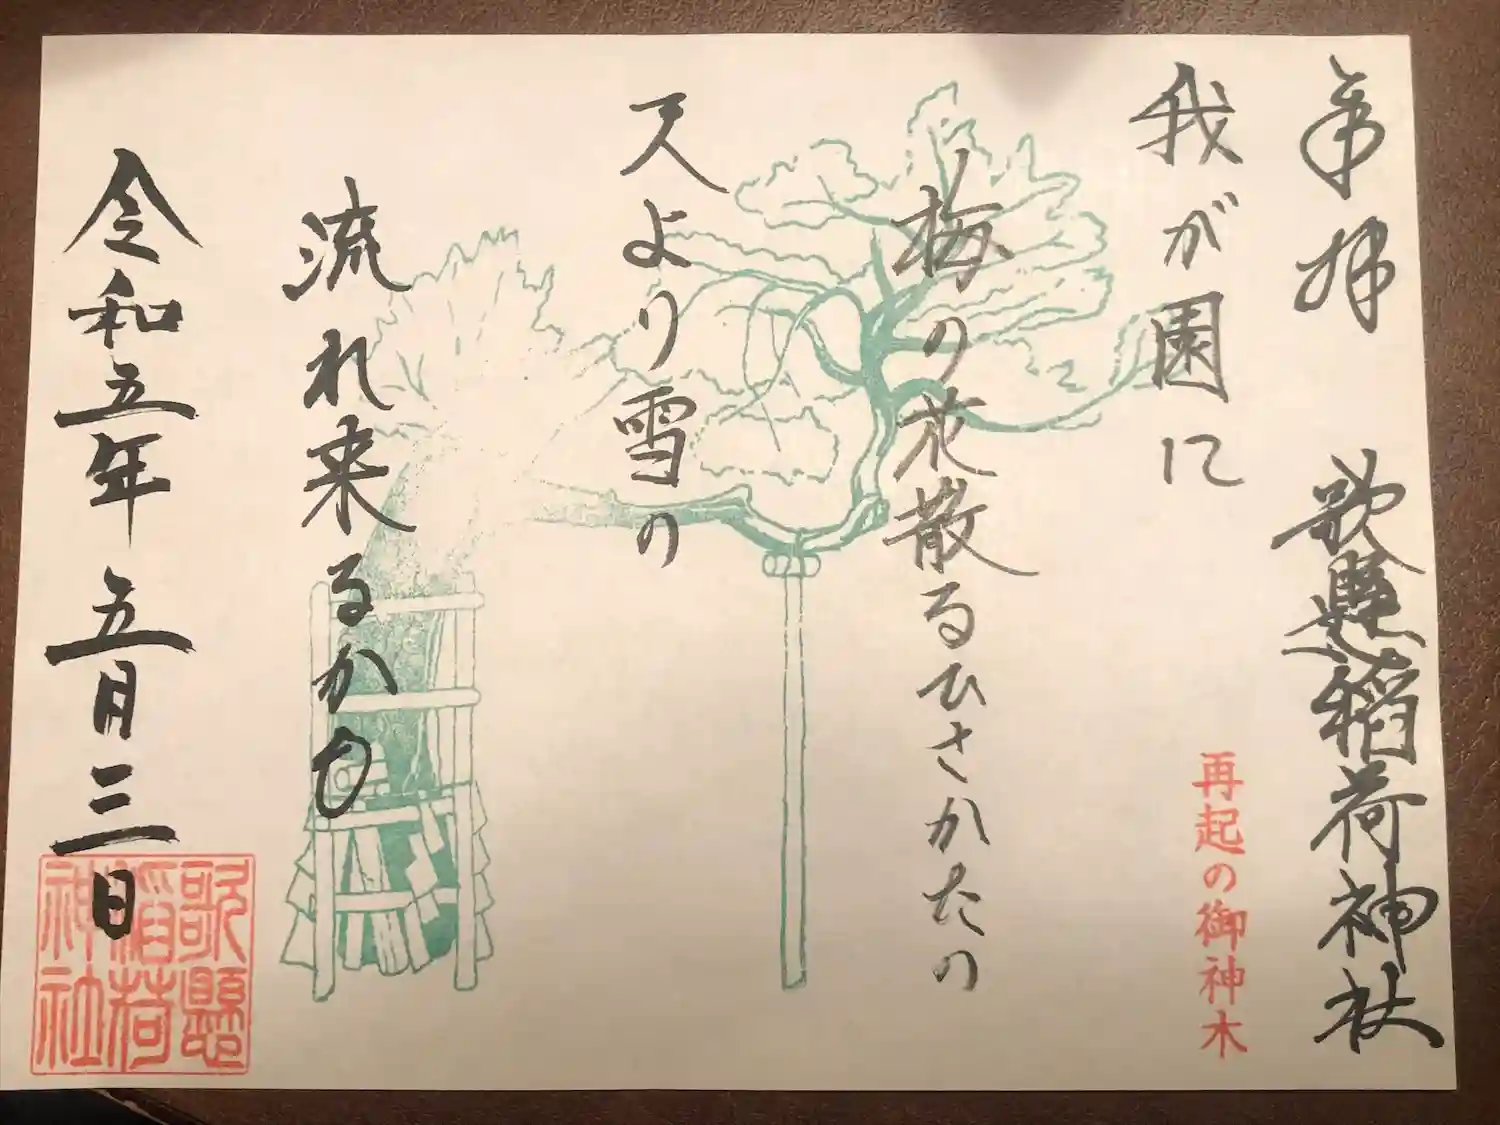 奉拝
歌懸稲荷神社
再起の御神木
我が園に
梅の花散るひさかたの
天より雪の
流れ来るかも
令和五年五月三日
歌懸
稲荷
神社